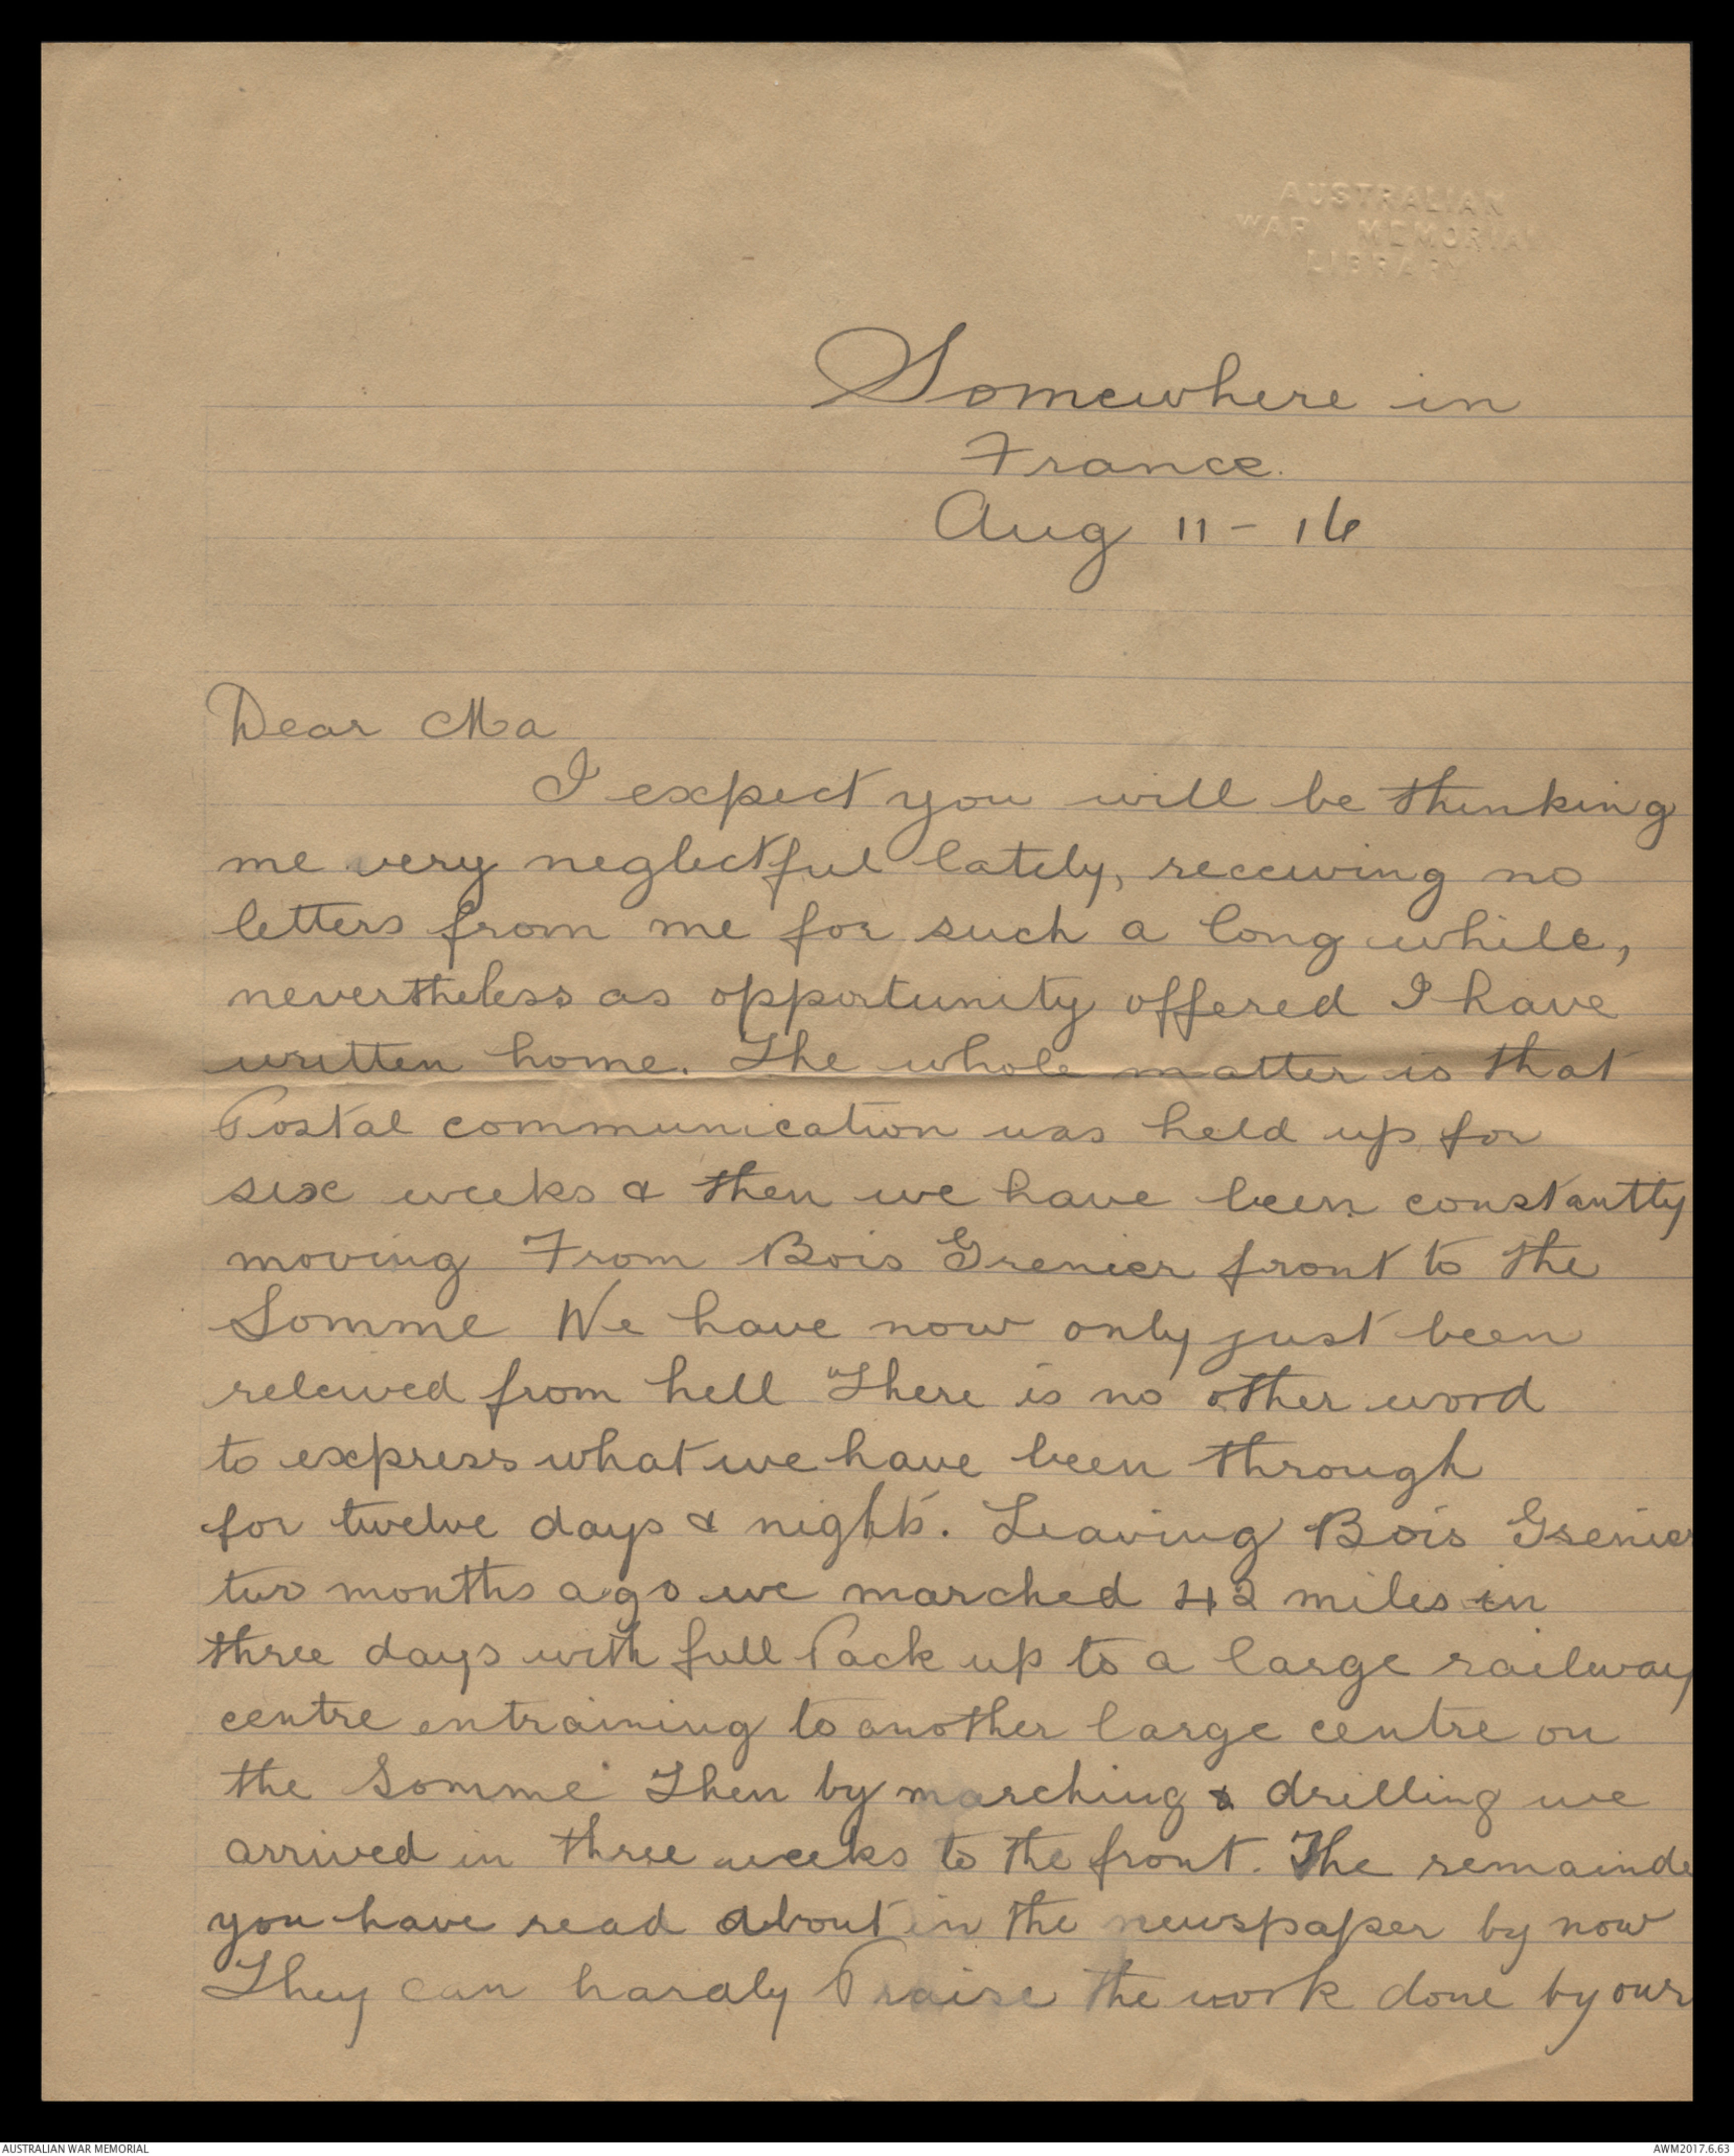 AUSTRALIAN
WAR MEMORIAL
LIBRARY
Somewhere in
France.
Aug 11 - 16
Dear Ma
I expect you will be thinking
me very neglectful lately, receiving no
letters from me for such a long while,
nevertheless as opportunity offered I have
written home. The whole matter is that
Postal communication was held up for
six weeks & then we have been constantly
moving From Bois Grenier front to the
Somme We have now only just been
releived from hell There is no other word
to express what we have been through
for twelve days & nights. Leaving Bois Grenier
two months ago we marched 42 miles in
three days with full Pack up to a large railway
centre entraining to another large centre on
the Somme Then by marching & drilling we
arrived in three weeks to the front. The remainde
you have read about in the newspaper by now
They can hardly Praise the work done by our
AUSTRALIAN WAR MEMORIAL
AWM2017.6.63